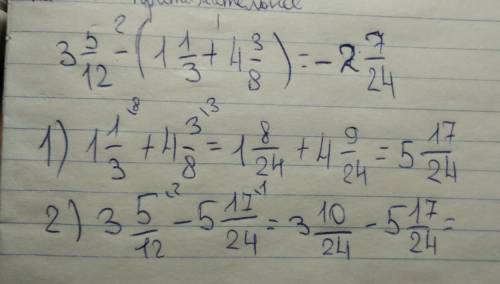 3 5/12 - (1 1/3 + 4 3/8) = -2 7/24
1) 1 1/3 + 4 3/8 = 1 8/24 + 4 9/24 = 5 17/24
2) 3 5/12 - 5 17/24 = 3 10/24 - 5 17/24 =